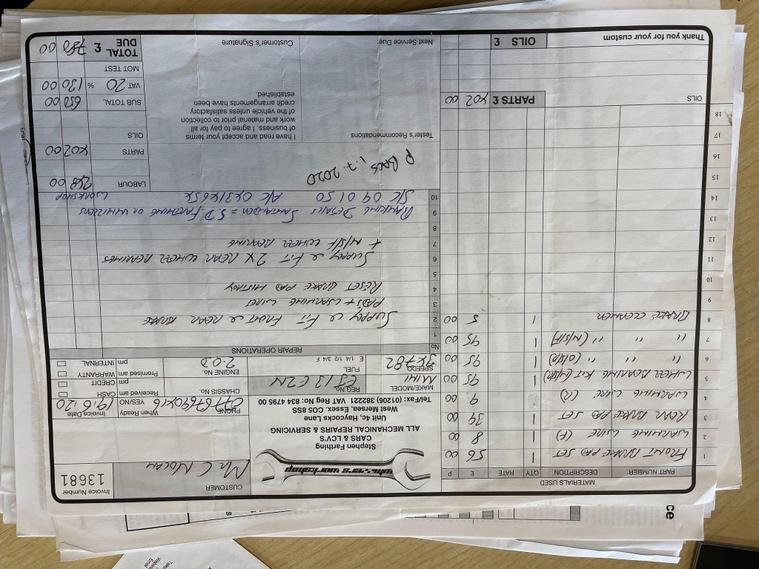 MATERIALS USED
PART NUMBER DESCRIPTION QTY RATE £ P
1 FRONT BRAKE PAD SET 1 56 00
2 WARNING WIRE (F) 1 8 00
3 REAR BRAKE PAD SET 1 39 00
4 WARNING WIRE (R) 1 9 00
5 WHEEL BEARING KIT 1 95 00
6 " " " (O/S/R) 1 95 00
7 " " " (N/S/F) 1 95 00
8 BRAKE CLEANER 1 5 00
9
10
11
12
13
14
15
16
17
18
PARTS £ 402 00
OILS
OILS £
Thank you for your custom
workshop
Stephen Farthing
CARS & LCV'S
ALL MECHANICAL REPAIRS & SERVICING
Unit 4c, Haycocks Lane
West Mersea, Essex, CO5 8SS
Tel/Fax: (01206) 382221 VAT Reg: No: 834 4795 00
CUSTOMER Mr C
Invoice Number
13681
PHONE
When Ready YES/NO
Invoice Date 19.6.20
MAKE/MODEL MINI
REG.No.
CHASSIS No.
Cash Received am pm
CASH
CREDIT
SPEEDO
FUEL E 1/4 1/2 3/4 F
ENGINE No. 2.0D
Promised am pm
WARRANTY
INTERNAL
No REPAIR OPERATIONS
1
2 SUPPLY & FIT FRONT & REAR BRAKE
3 PADS + WARNING WIRES
4 RESET BRAKE PAD HISTORY
5
6 SUPPLY & FIT 2X REAR WHEEL BEARINGS
7 + N/S/F WHEEL BEARING
8
9 BANKING DETAILS SANTANDER = S D FARTHING
10 S/C 09 01 50 A/C WORKSHOP
BACS 1.7.2020
Tester's Recommendations
Next Service Due:
I have read and accept your terms of business. I agree to pay for all work and material prior to collection of the vehicle unless satisfactory credit arrangements have been established.
Customer's Signature
LABOUR 248 00
PARTS 402 00
OILS
SUB TOTAL 650 00
VAT 20 % 130 00
MOT TEST
TOTAL DUE £ 780 00